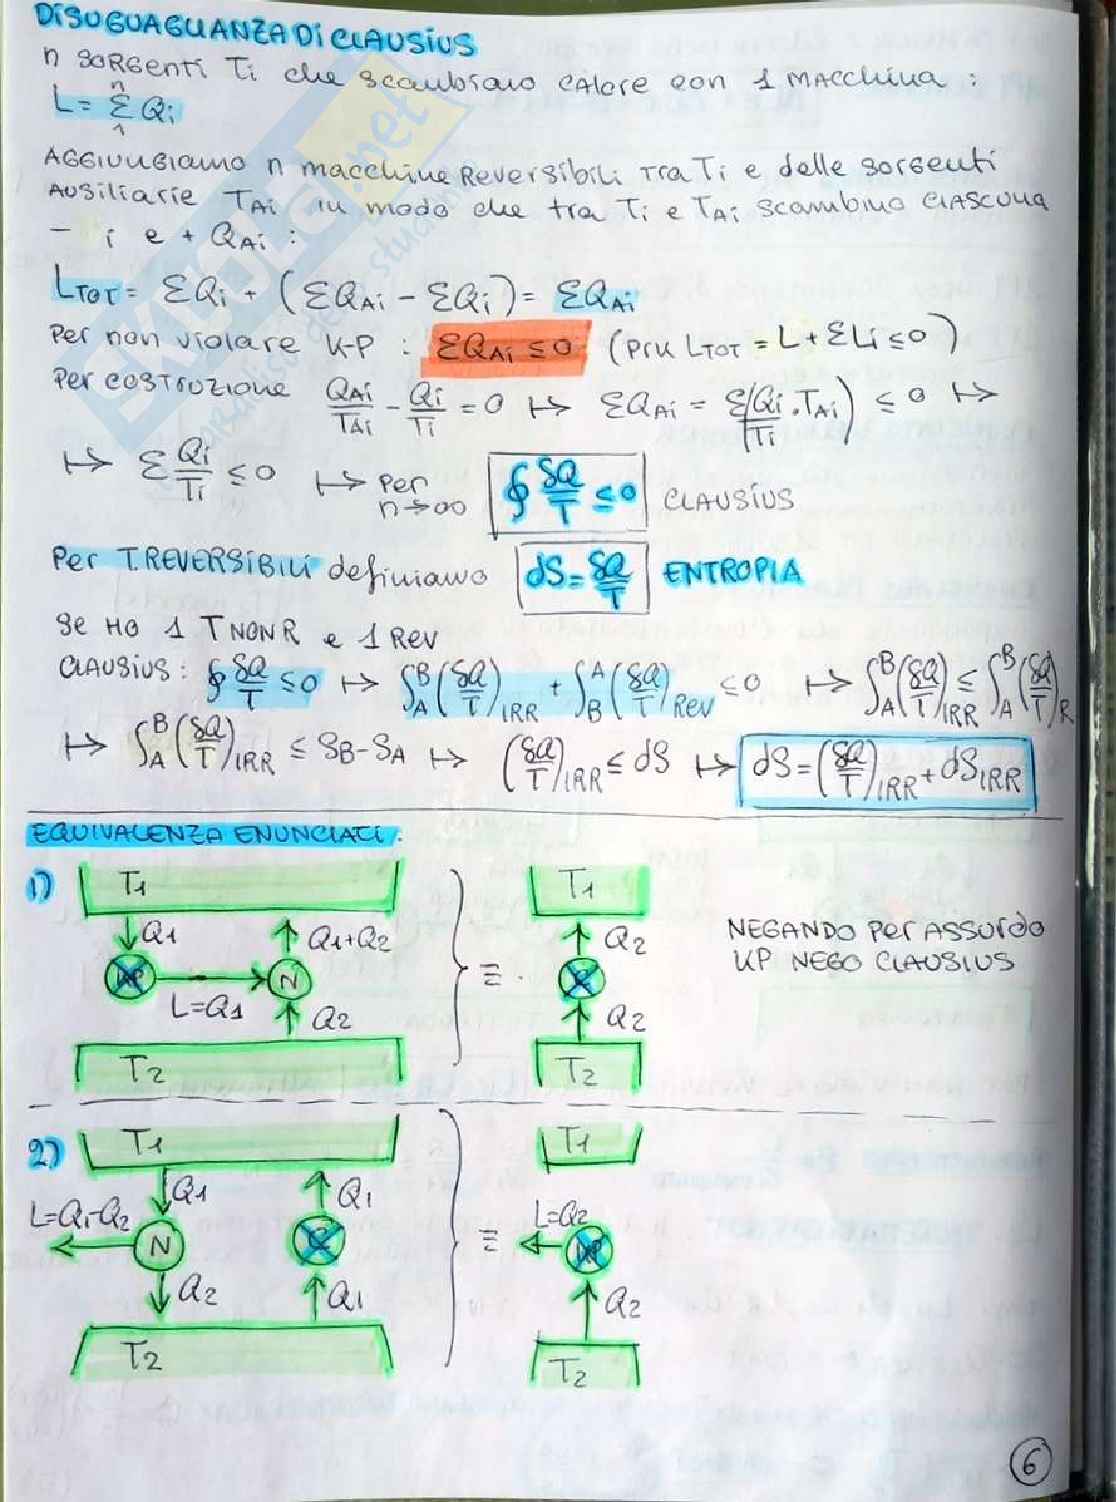 DISUGUAGLIANZA DI CLAUSIUS
n SORGENTI Ti che scambiano CALORE con 1 MACCHINA :
L = Σ Qi
n
1
AGGIUNGIAMO n macchine REVERSIBILI TRA Ti e delle SORGENTI
AUSILIARIE TAi in modo che tra Ti e TAi scambino CIASCUNA
- i e + QAi :
LTOT = ΣQi + (ΣQAi - ΣQi) = ΣQAi
Per non violare K-P : ΣQAi ≤ 0 (PerK LTOT = L + ΣLi ≤ 0)
Per COSTRUZIONE QAi/TAi - Qi/Ti = 0 ↦ ΣQAi = Σ(Qi/Ti · TAi) ≤ 0 ↦
↦ Σ Qi/Ti ≤ 0 ↦ Per n→∞ ∮ δQ/T ≤ 0 CLAUSIUS
Per T.REVERSIBILI definiamo dS = δQ/T ENTROPIA
Se HO 1 T NON R e 1 REV
CLAUSIUS : ∮ δQ/T ≤ 0 ↦ ∫A^B (δQ/T)IRR + ∫B^A (δQ/T)REV ≤ 0 ↦ ∫A^B (δQ/T)IRR ≤ ∫A^B (δQ/T)R
↦ ∫A^B (δQ/T)IRR ≤ SB - SA ↦ (δQ/T)IRR ≤ dS ↦ dS = (δQ/T)IRR + dSIRR
EQUIVALENZA ENUNCIATI :
1) T1 T1
Q1 Q1+Q2 Q2
KP N ≡ C
L=Q1 Q2 Q2
T2 T2
NEGANDO Per ASSURDO
KP NEGO CLAUSIUS
2) T1 T1
Q1 Q1
L=Q1-Q2 N C ≡ L=Q2 KP
Q2 Q1 Q2
T2 T2
6
SKUOLA.net